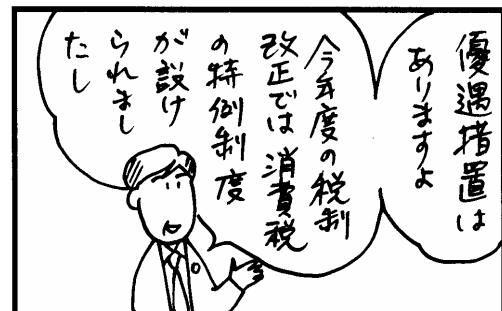 優遇措置は
ありますよ
今年度の税制
改正では消費税
の特例制度
が設け
られまし
たし